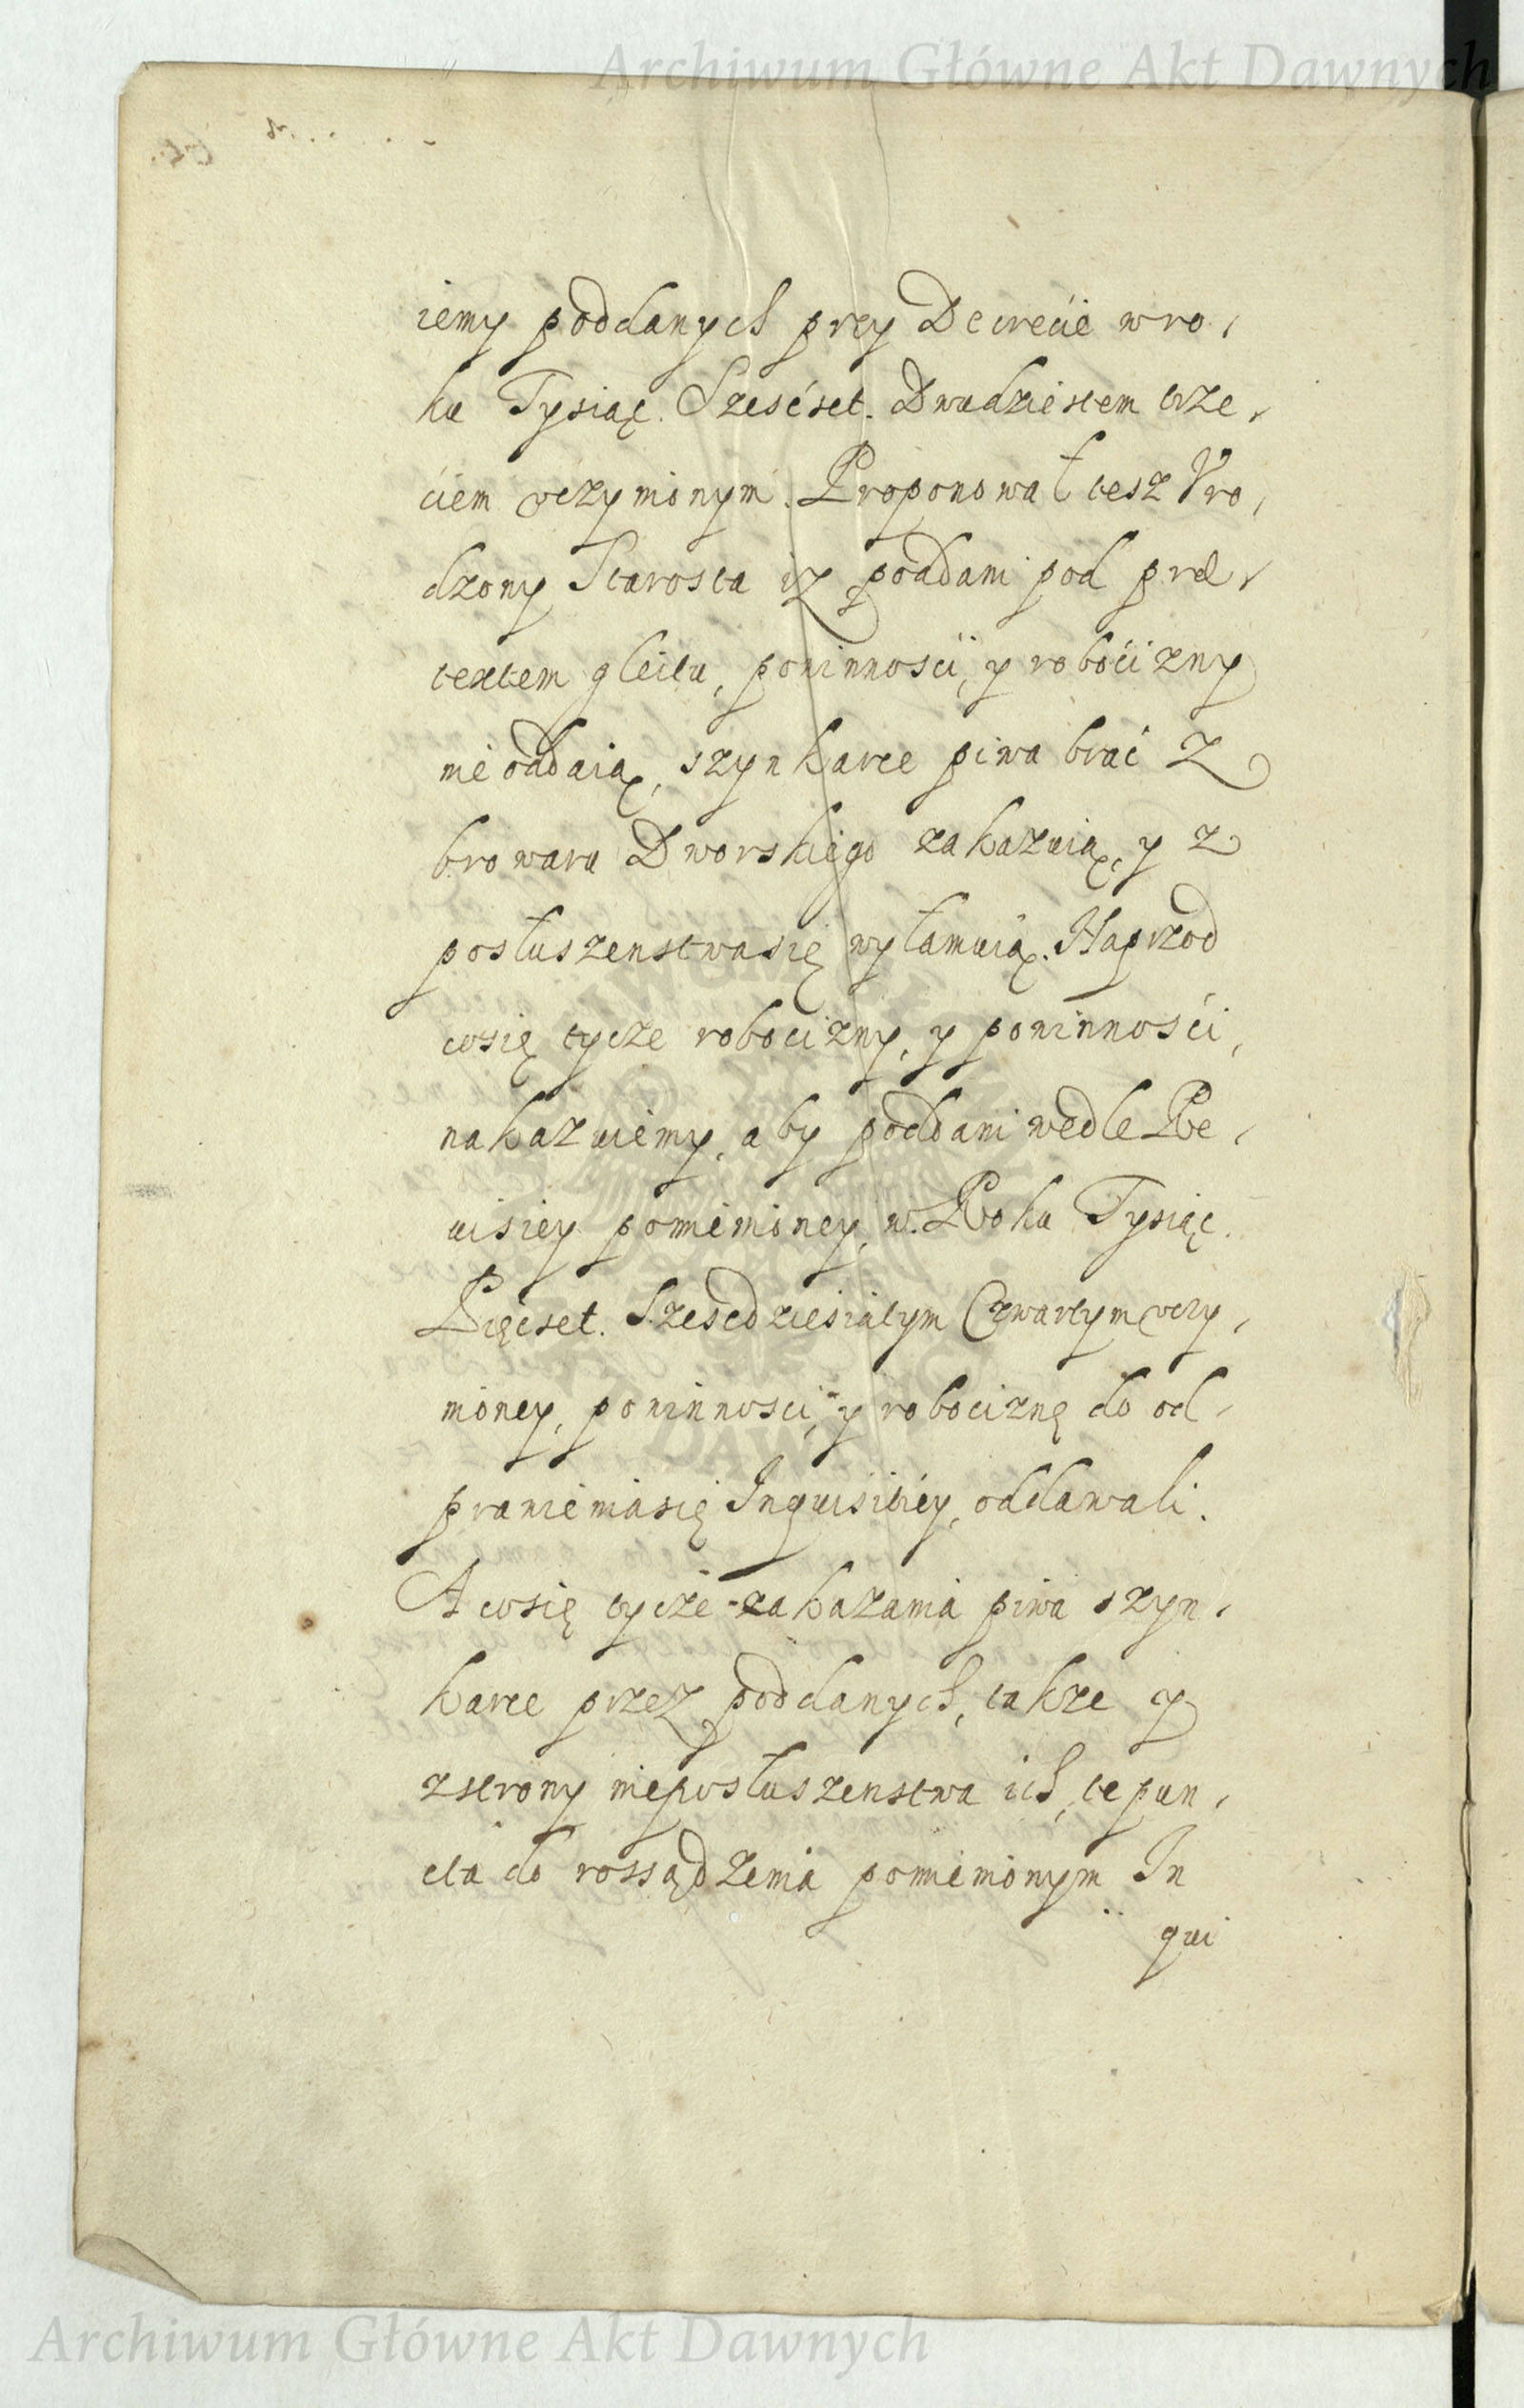 Archiwum Główne Akt Dawnych
iemy poddanych przy Decrecie wro,
ku Tysiąc. Sześćset. Dwudziestem trze,
ciem uczynionym. Proponował tesz Uro,
dzony Starosta iz poddani pod præ,
textem gleitu, powinności, y robocizny
nie oddaią, szynkarce piwa brać z
browaru Dworskiego zakazuią, y z
posłuszenstwasię wyłamuią. Naprzod
cosię tycze robocizny, y powinności,
nakazuiemy, aby poddani wedle Re,
uisiey pomienioney, w Roku Tysiąc.
Pięcset. Szescdziesiątym Czwartym uczy,
nioney, powinnosci, y robociznę do od,
prawieniasię Inquisitiey, oddawali.
A cosię tycze zakazania piwa szyn,
karce przez poddanych, takze y
zstrony nieposłuszenstwa ich, te pun,
cta do rossądzenia pomienionym In
qui
Archiwum Główne Akt Dawnych